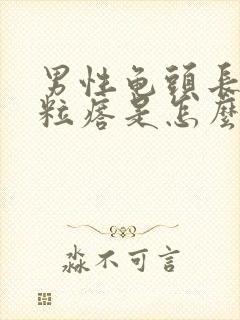 男性龟頭長
粒痞是怎麼
淼不可言